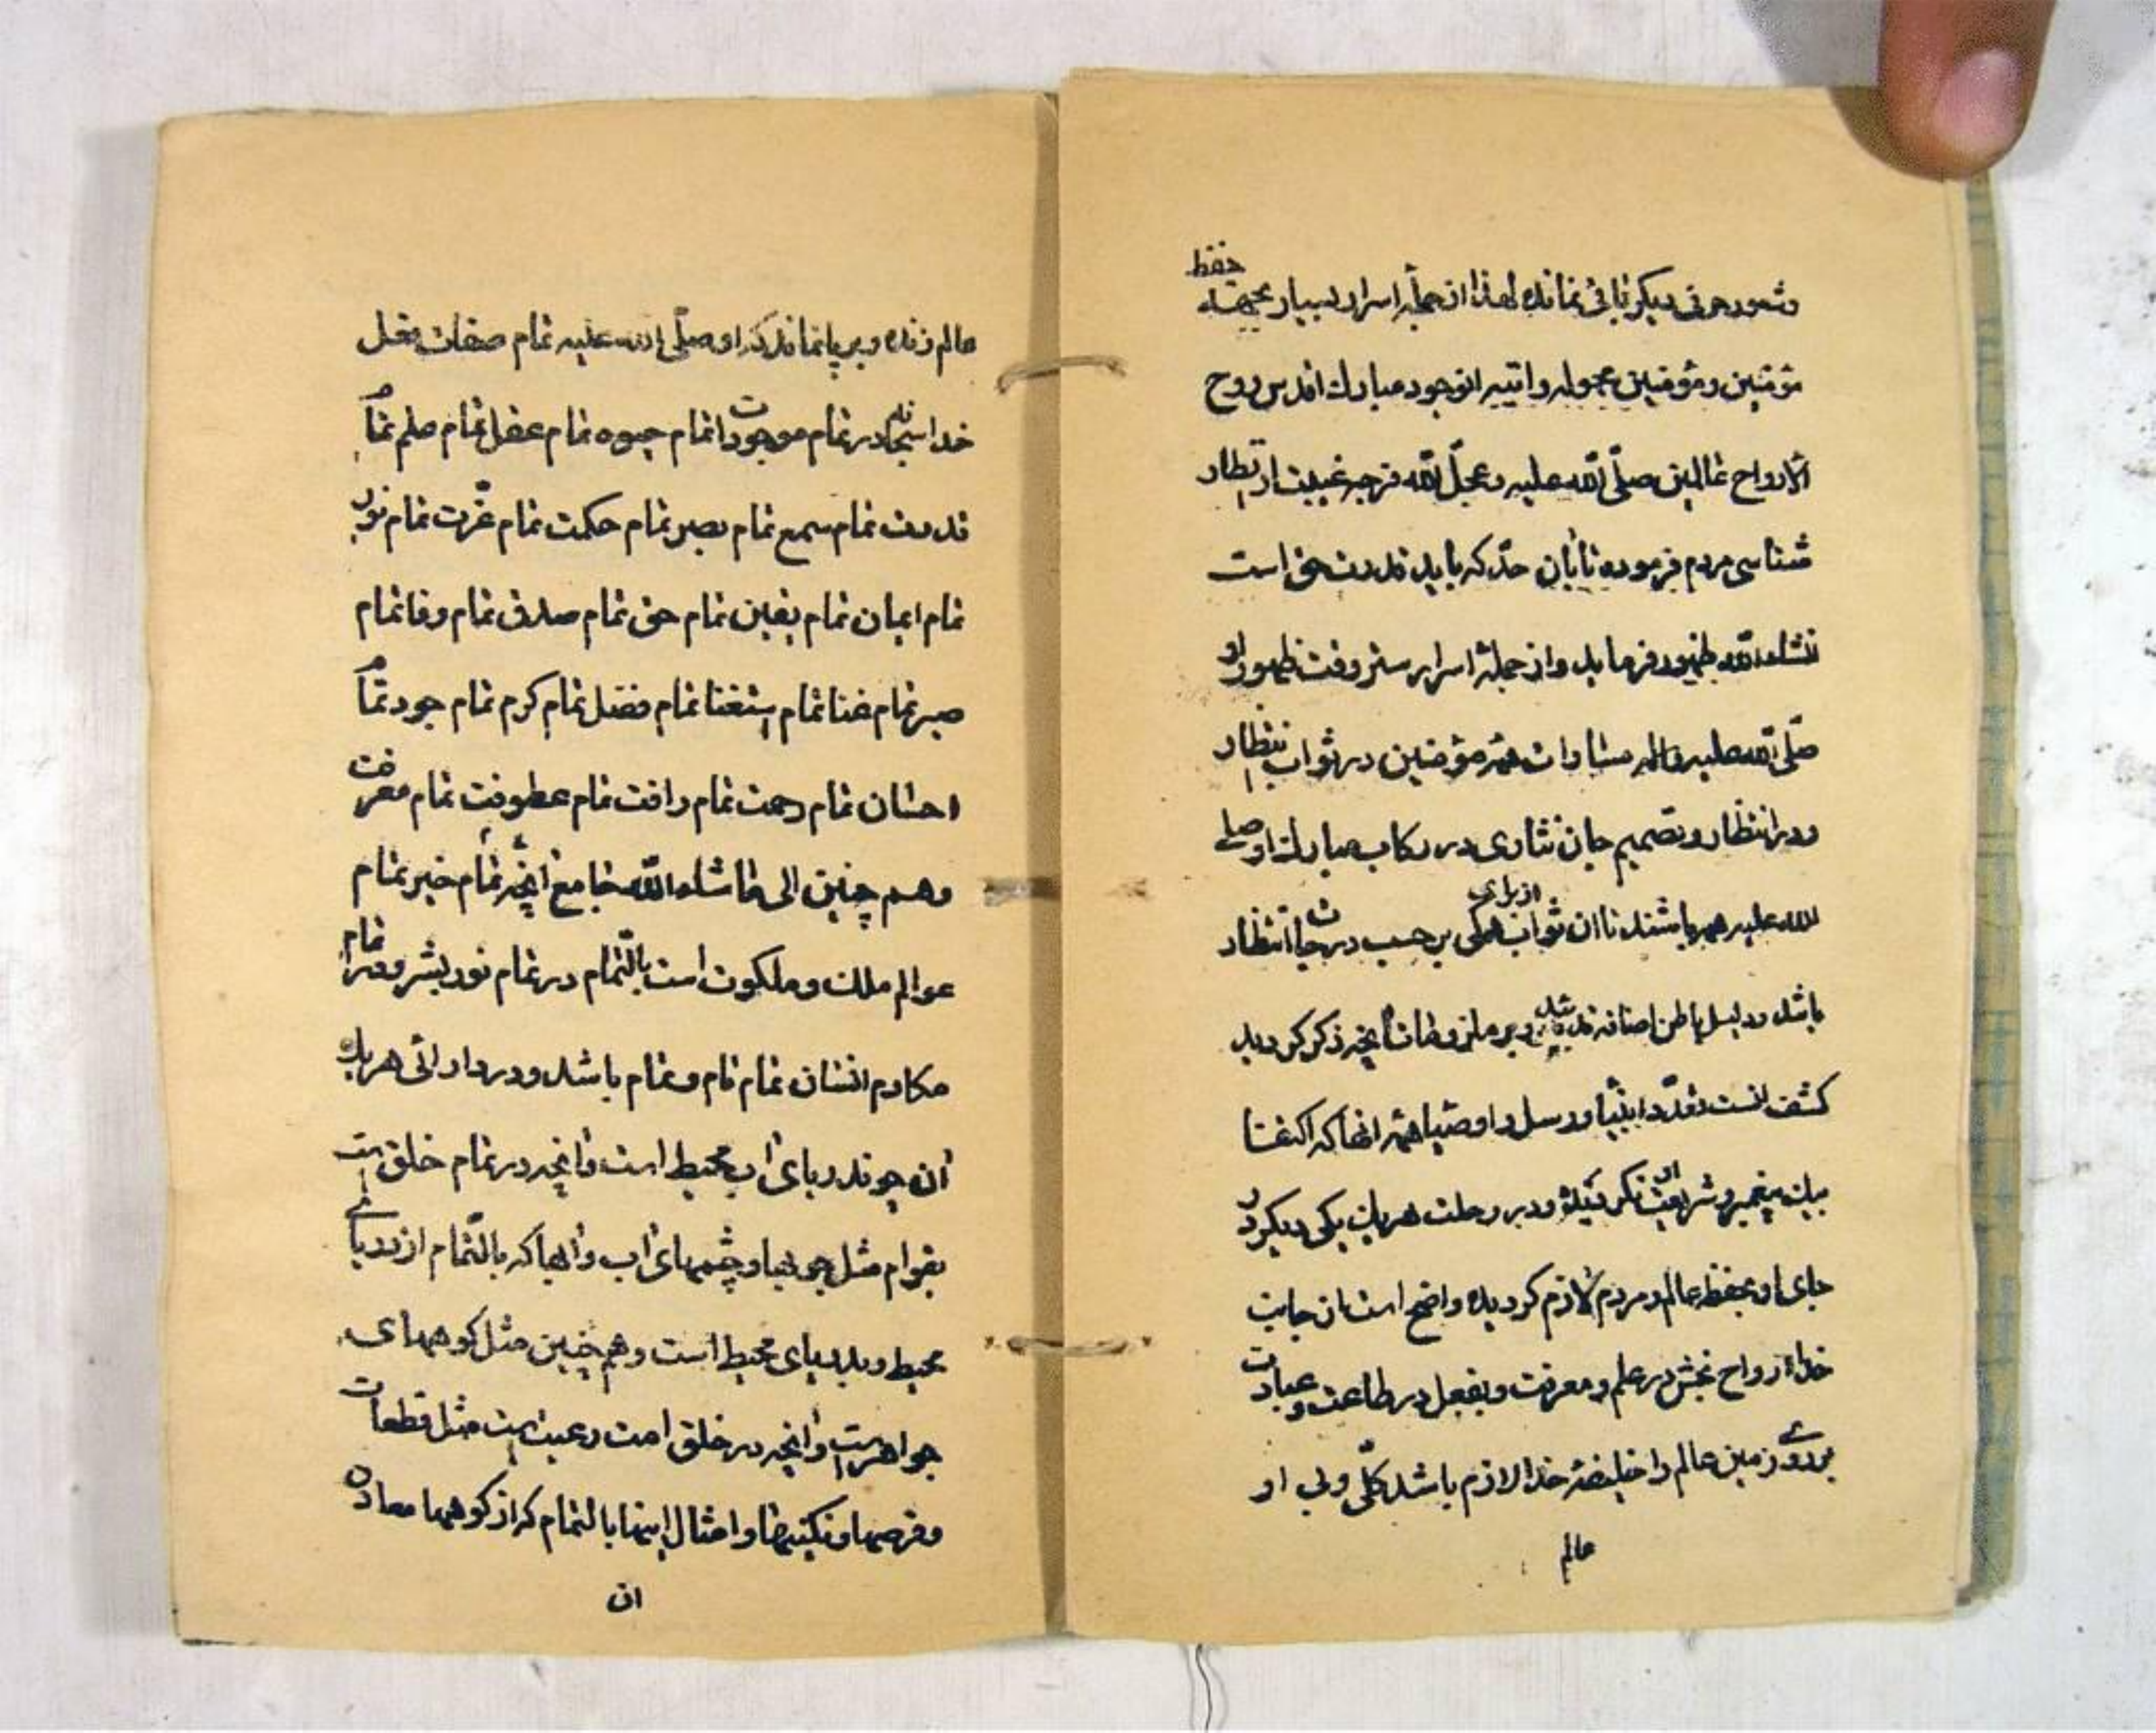 وشعور حرفی دیگر باقی نمانده لهذا از جمله اسرار بسیار بجهت حفظ
مؤمنین ومؤمنین بجوله واتیه انوجود مبارك اقدس روح
الارواح عالمین صلّی اللّه علیه وعجّل اللّه فرجه غیبت ارتظار
شناسی مردم فرموده تا بان حدّ که باید قدرت حق است
نشاء اللّه ظهور فرماید واز جملهٔ اسرار ستر وقت ظهور او
صلّی اللّه علیه واله مساوات همه مؤمنین در ثواب انتظار
ودر انتظار وتصمیم جان نثاری در رکاب مبارك او صلی
اللّه علیه همه باشند تا ان ثواب از برای همگی بر حسب درجات انتظار
باشد ودلیل باطن اضافه بر ملزومات آنچه ذکر کردید
کشف انست تعدّد انبیا ورسل واوصیا همه انها که اکتفا
بیك پیغمبر وشریعت او نکردیده ودر رحلت هریك یکی دیکر در
جای او بحفظ عالم ومردم لازم کردیده واضح است از جانب
خدا ارواح بخش در علم ومعرفت وبفعل در طاعت وعبادت
بر روی زمین عالم را خلیفهٔ خدا لازم باشد کلّی ولی او
عالم
عالم زنده وبرپا نماند که او صلّی اللّه علیه تمام صفات فعل
خدا سبحانه در تمام موجودات تمام حیوه تمام عقل تمام علم تمام
قدرت تمام سمع تمام بصیر تمام حکمت تمام عزّت تمام نور
تمام ایمان تمام یقین تمام حق تمام صدق تمام وفا تمام
صبر تمام غنا تمام استغنا تمام فضل تمام کرم تمام جود تمام
احسان تمام رحمت تمام رافت تمام عطوفت تمام معرفت
وهم چنین الی ماشاء اللّه جامع آنچه تمام خیر تمام
عوالم ملك وملکوت است بالتّمام در تمام نور بشر ودر تمام
مکارم انسان تمام تام وتمام باشد ودر دارائی هریك
آن چو ند دریای آب محیط است وآنچه در تمام خلق است
بقوام مثل جویها وچشمهای آب وآنها که بالتّمام از دریای
محیط وبدریای محیط است وهم چنین مثل کوههای
جواهر است وآنچه در خلق امت رعیت است مثل قطعات
وقرصها ونکینها وامثال اینها بالتمام که از کوهها معادن
ان